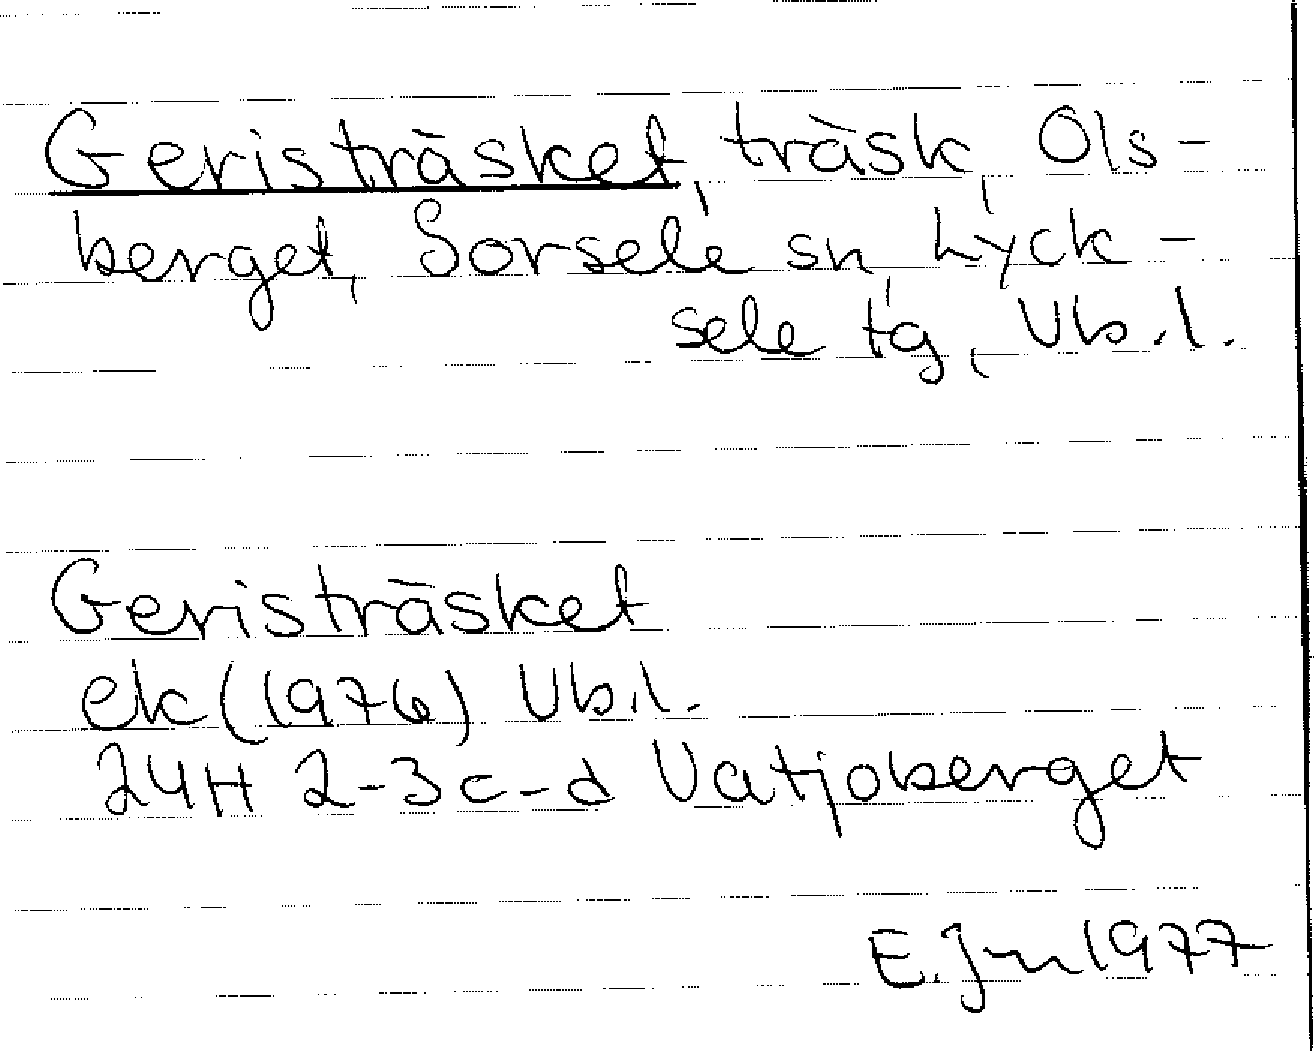 Geristräsket, träsk, Ols-
berget, Sorsele sn, Lyck-
sele tg, Vb.l.
Geristräsket
ek (1976) Vb.l.
24H 2-3c-d Vatjoberget
E. Jn 1977